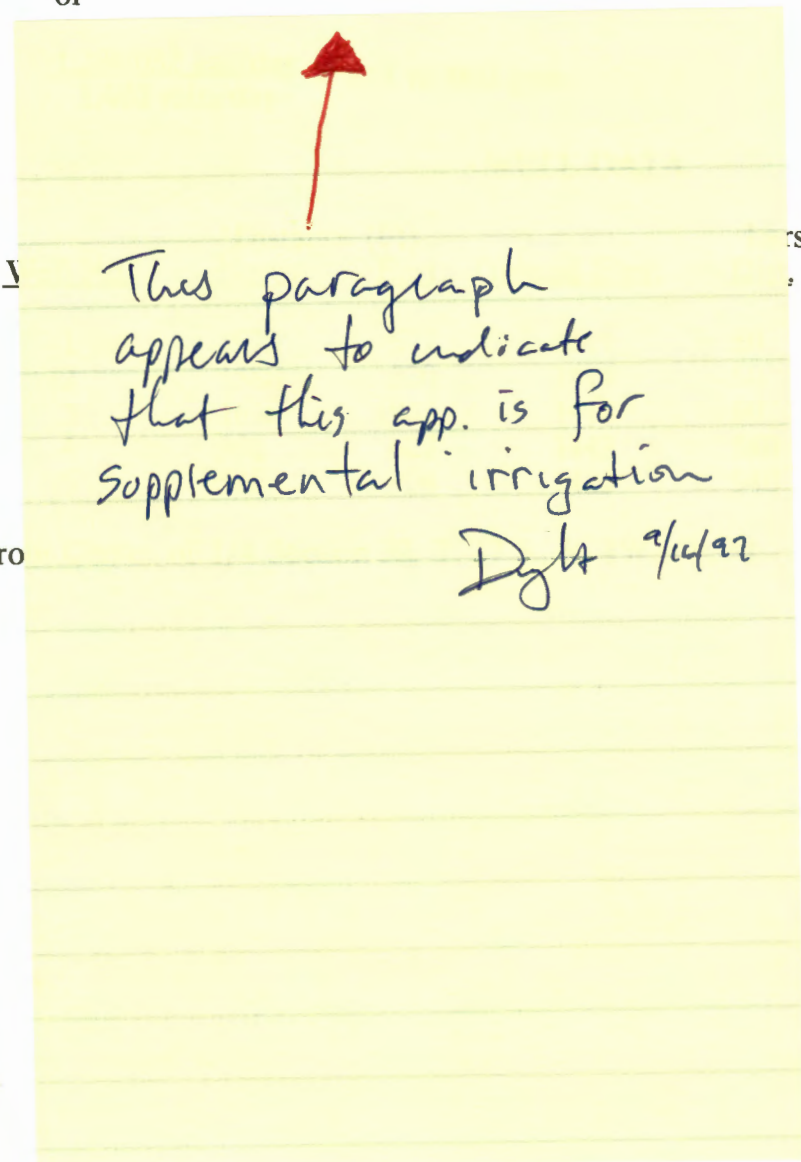 or
rs
V
This paragraph
appears to indicate
that this app. is for
supplemental irrigation
ro